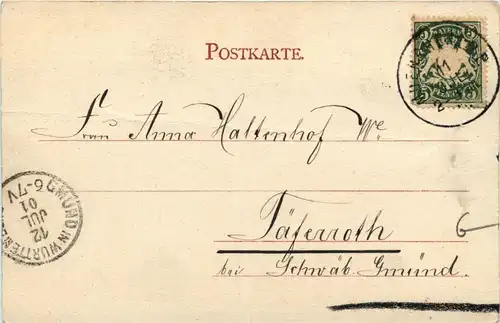 POSTKARTE.
BAYERN
Frau Anna Haltenhof We
Täferroth
bei Schwäb. Gmünd.
GMUND IN WÜRTTEMB
12
JUL
01
6-7V